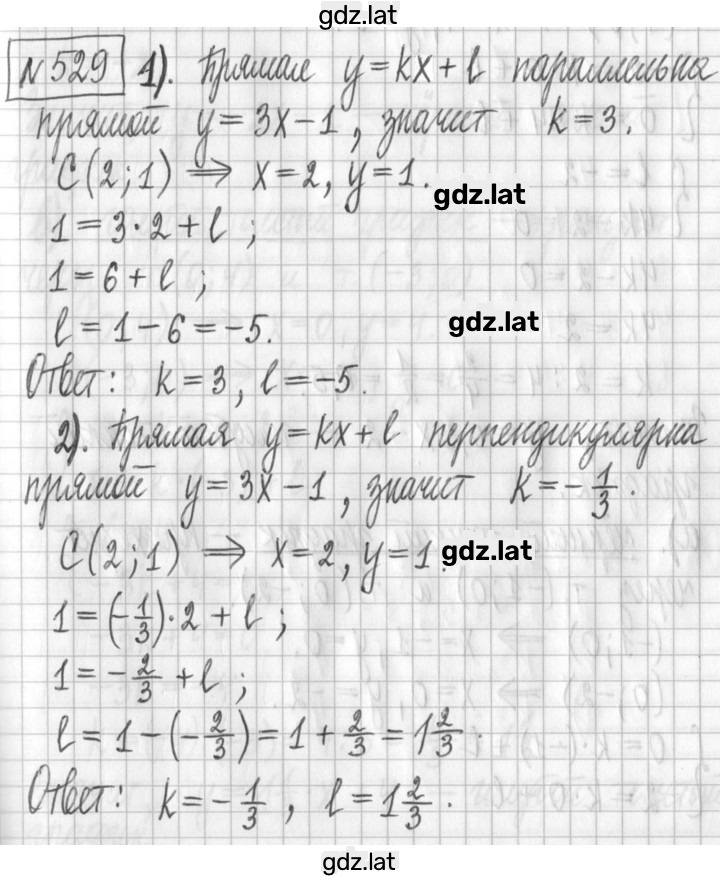 gdz.lat
№529 1). Прямая y=kx+l параллельна
прямой y=3x-1, значит k=3.
C(2;1) ⟹ x=2, y=1.
gdz.lat
1=3·2+l;
1=6+l;
l=1-6=-5.
gdz.lat
Ответ: k=3, l=-5.
2). Прямая y=kx+l перпендикулярна
прямой y=3x-1, значит k=-1/3.
C(2;1) ⟹ x=2, y=1.
gdz.lat
1=(-1/3)·2+l;
1=-2/3+l;
l=1-(-2/3)=1+2/3=1 2/3.
Ответ: k=-1/3, l=1 2/3.
gdz.lat